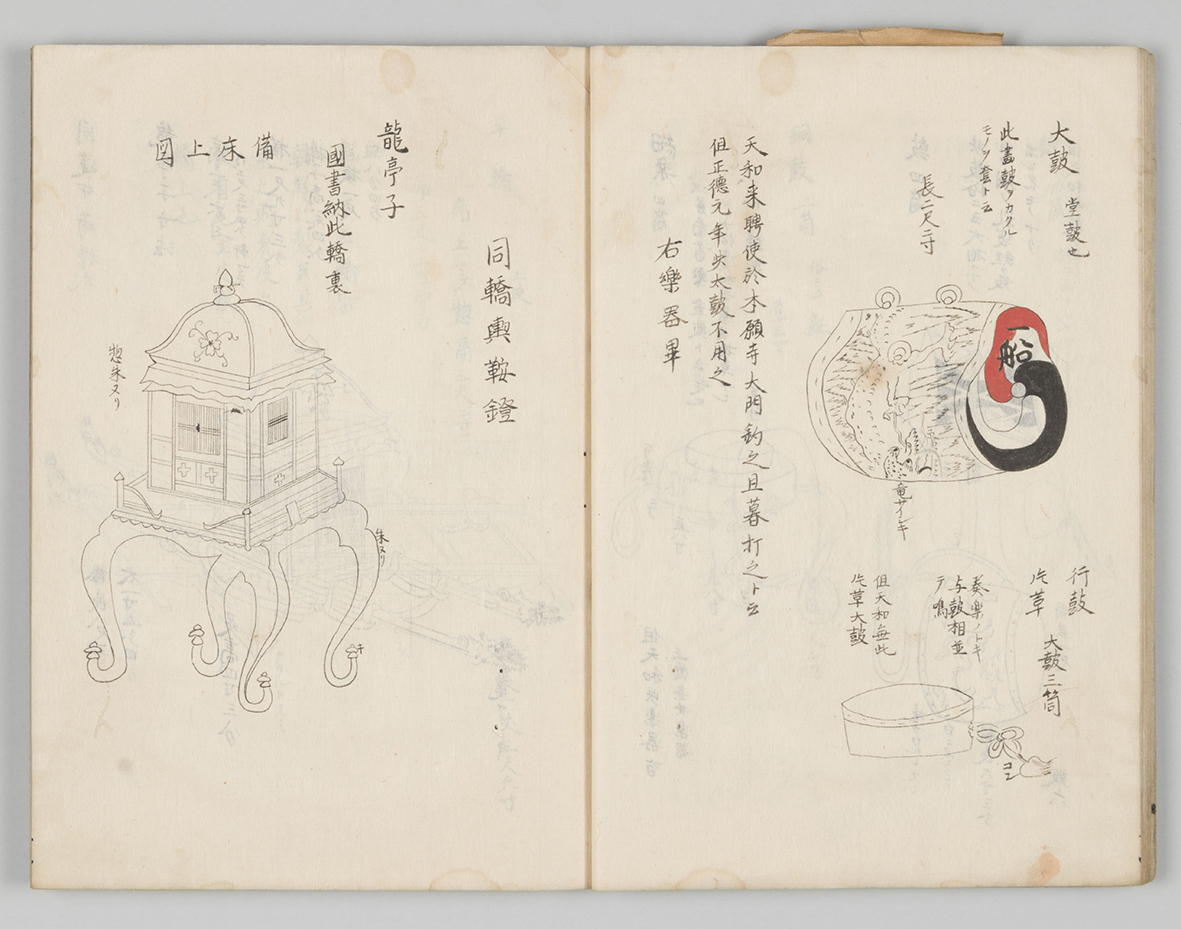 大鼓 堂鼓也
此畫鼓ヲカクル
モノヲ套ト云
長二尺三寸
一船
竜サイシキ
行鼓 大鼓三箇
片革
奏樂ノトキ
与鼓相並
テ鳴
但天和無此
片革大鼓
コシ
天和来聘使於本願寺大門釣之旦暮打之ト云
但正德元年ハ太鼓不用之
右樂器畢
同轎輿鞍鐙
龍亭子
國書納此轎裏
備床上図
惣朱ヌリ
朱ヌリ